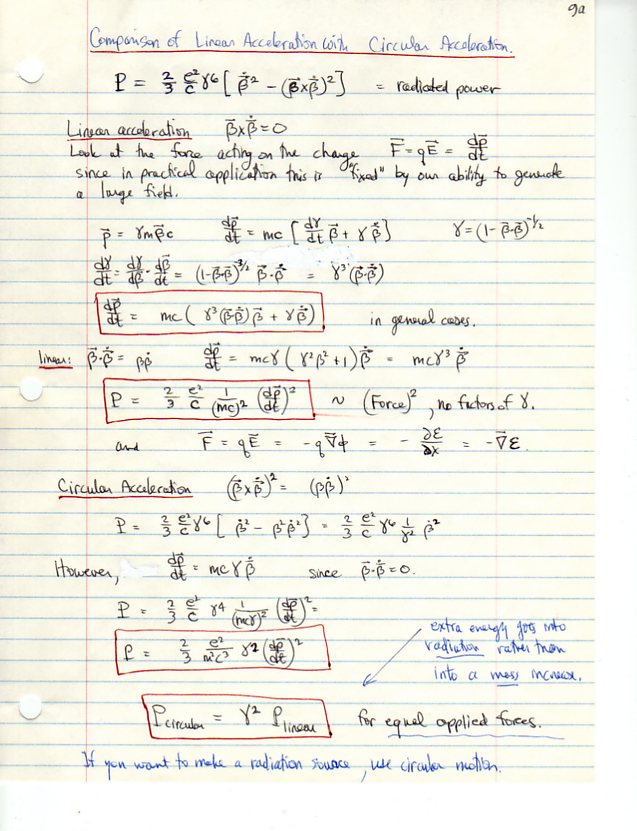 9a
Comparison of Linear Acceleration with Circular Acceleration.
P = 2/3 e²/c γ⁶ [ β̇² − (β⃗×β⃗̇)² ] = radiated power
Linear acceleration β⃗×β⃗̇ = 0
Look at the force acting on the charge F⃗ = qE⃗ = dp⃗/dt
since in practical application this is "fixed" by our ability to generate
a large field.
p⃗ = γmβ⃗c dp⃗/dt = mc [ dγ/dt β⃗ + γ β⃗̇ ] γ = (1 − β⃗·β⃗)^-1/2
dγ/dt = dγ/dβ⃗ · dβ⃗/dt = (1−β⃗·β⃗)^-3/2 β⃗·β⃗̇ = γ³(β⃗·β⃗̇)
dp⃗/dt = mc ( γ³(β⃗·β⃗̇)β⃗ + γβ⃗̇ ) in general cases.
linear: β⃗·β⃗̇ = ββ̇ dp⃗/dt = mcγ ( γ²β² + 1 ) β⃗̇ = mcγ³ β⃗̇
P = 2/3 e²/c 1/(mc)² (dp⃗/dt)² ~ (Force)², no factors of γ.
and F⃗ = qE⃗ = −q∇⃗φ = − ∂ℰ/∂x = −∇⃗ℰ
Circular Acceleration (β⃗×β⃗̇)² = (ββ̇)²
P = 2/3 e²/c γ⁶ [ β̇² − β²β̇² ] = 2/3 e²/c γ⁶ 1/γ² β̇²
However, dp⃗/dt = mcγβ⃗̇ since β⃗·β⃗̇ = 0.
P = 2/3 e²/c γ⁴ 1/(mcγ)² (dp⃗/dt)² =
P = 2/3 e²/m²c³ γ² (dp⃗/dt)²
extra energy goes into
radiation rather than
into a mass increase.
P circular = γ² P linear for equal applied forces.
If you want to make a radiation source, use circular motion.